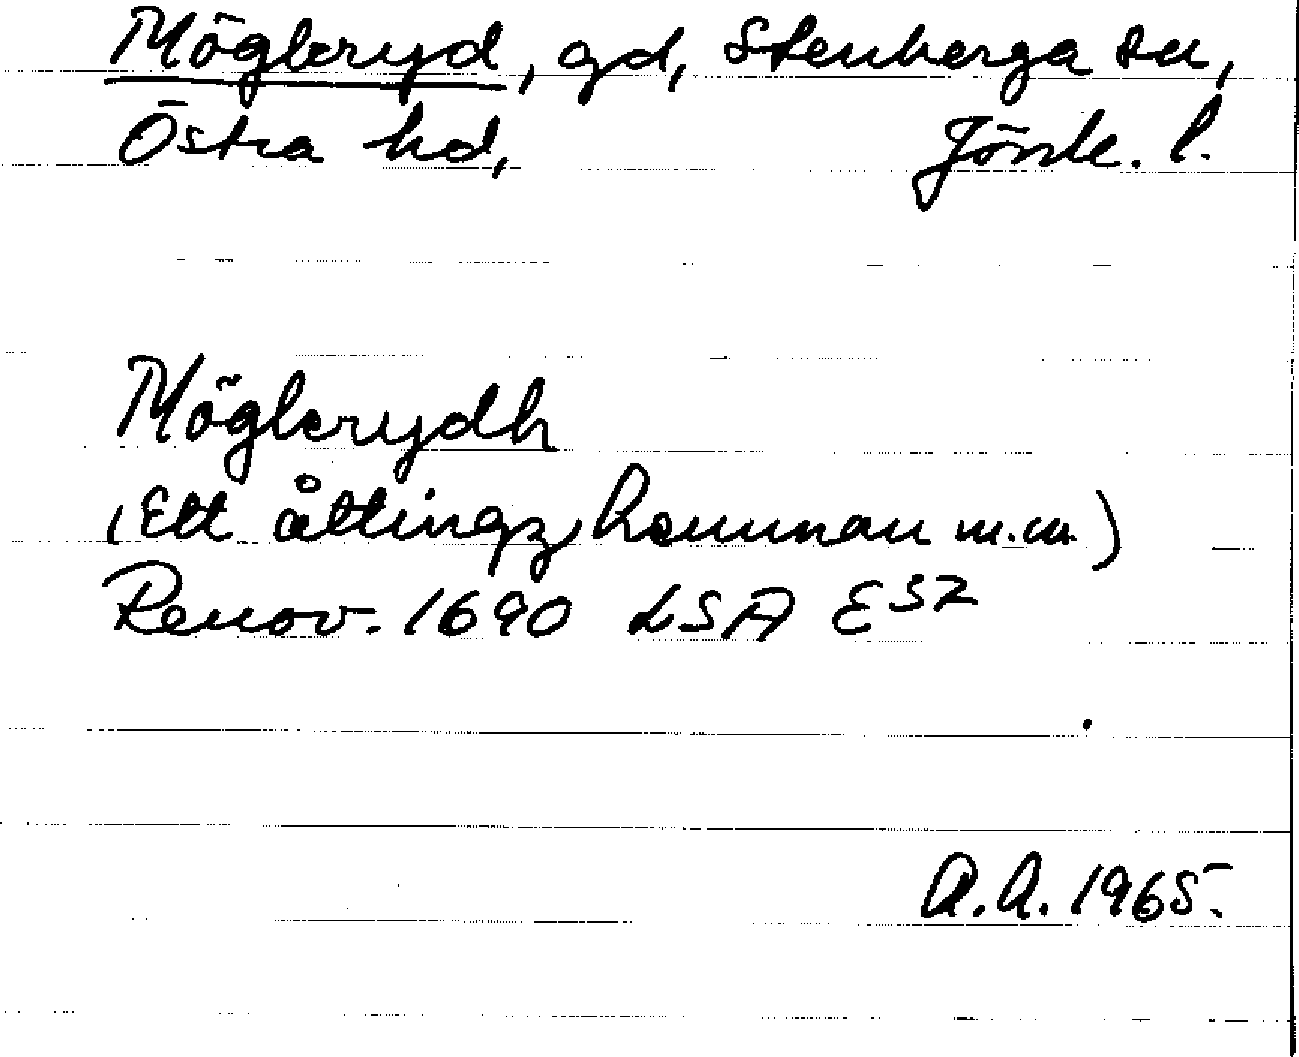 Mögleryd, gd, Stenberga sn,
Östra hd, Jönk. l.
Möglerydh
(Ett åttingz hemman m.m.)
Renov. 1690 LSA E 32
A.A. 1965.